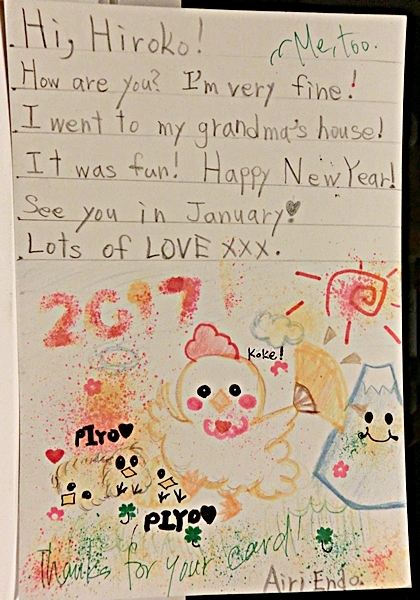 Hi, Hiroko!
Me, too.
How are you? I'm very fine!
I went to my grandma's house!
It was fun! Happy New Year!
See you in January!
Lots of LOVE xxx.
2017
Koke!
PIYO
PIYO
Thanks for your card!
Airi Endo